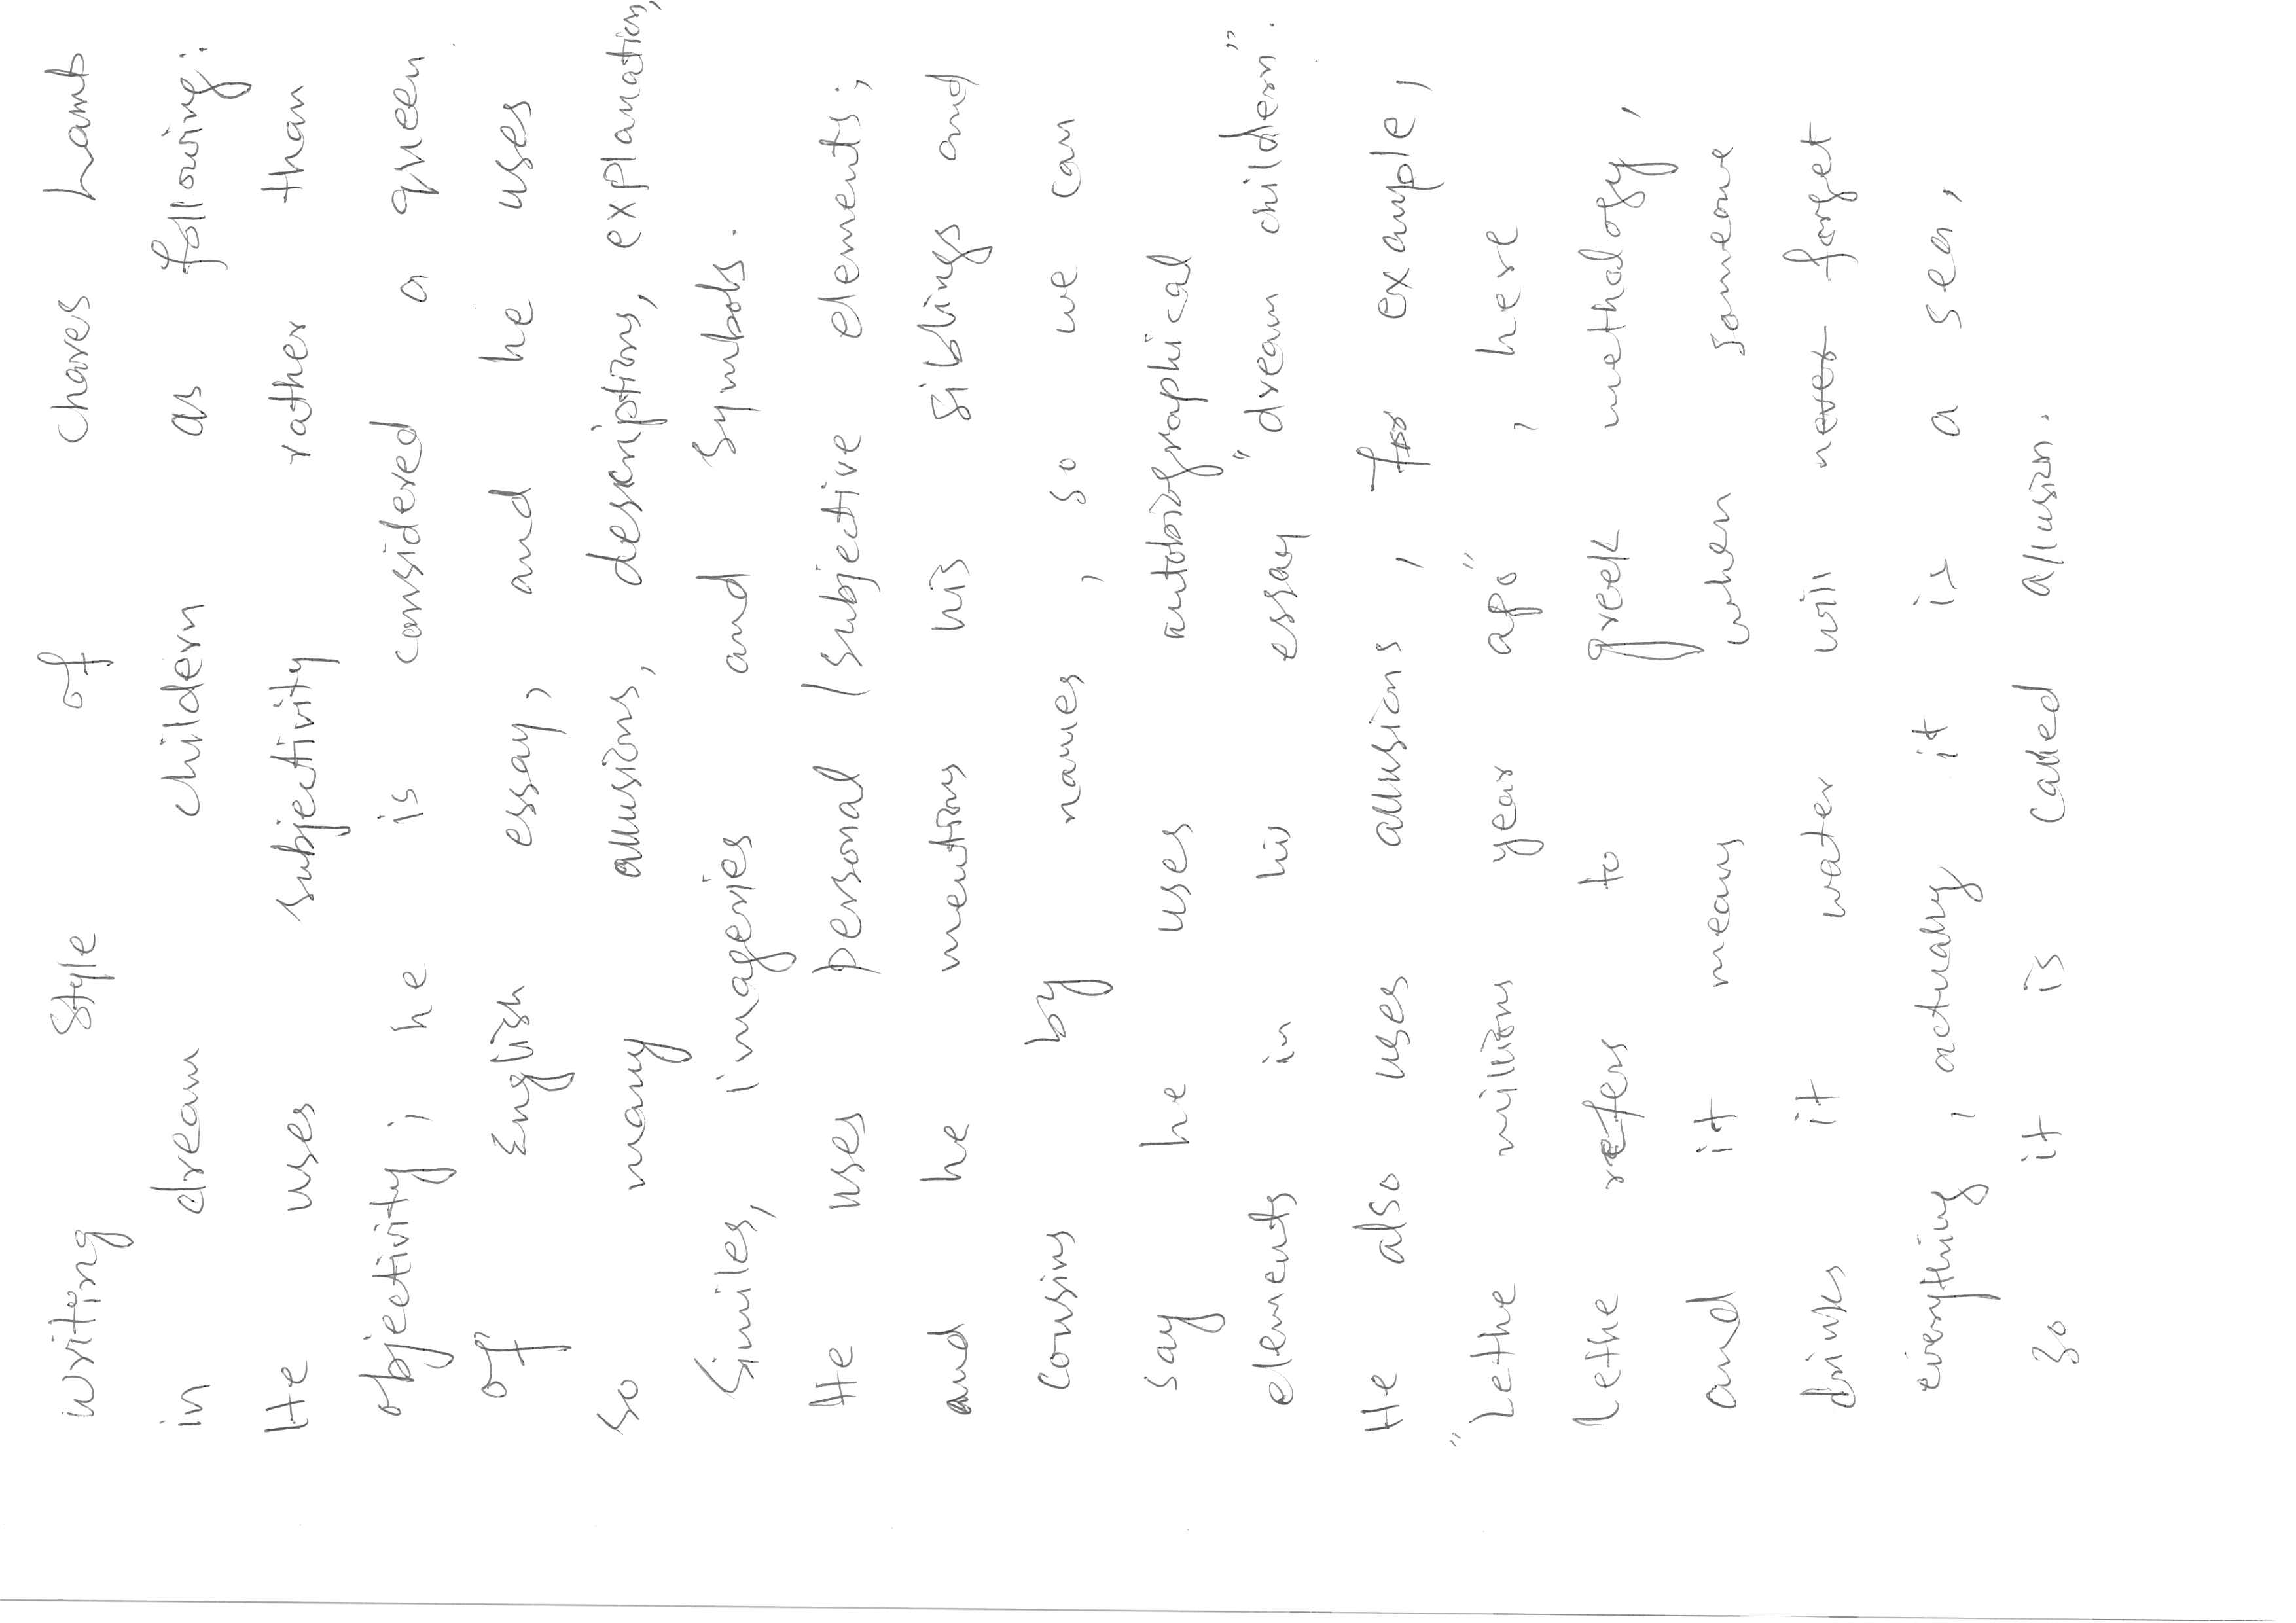 writing style of Chares Lamb
in dream childern as following:
He uses subjectivity rather than
objectivity; he is considered a queen
of English essay, and he uses
so many allusions, descriptions, explanation,
Similes, imageries and symbols.
He uses personal / subjective elements;
and he mentions his siblings and
cousins by names, so we can
say he uses autobiographical
elements in his essay "dream childern".
He also uses allusions, for example,
"Lethe millions year ago", here
lethe refers to greek methalogy,
and it means when someone
drinks it water will never forget
everything, actually it is a sea,
so it is called allusion.